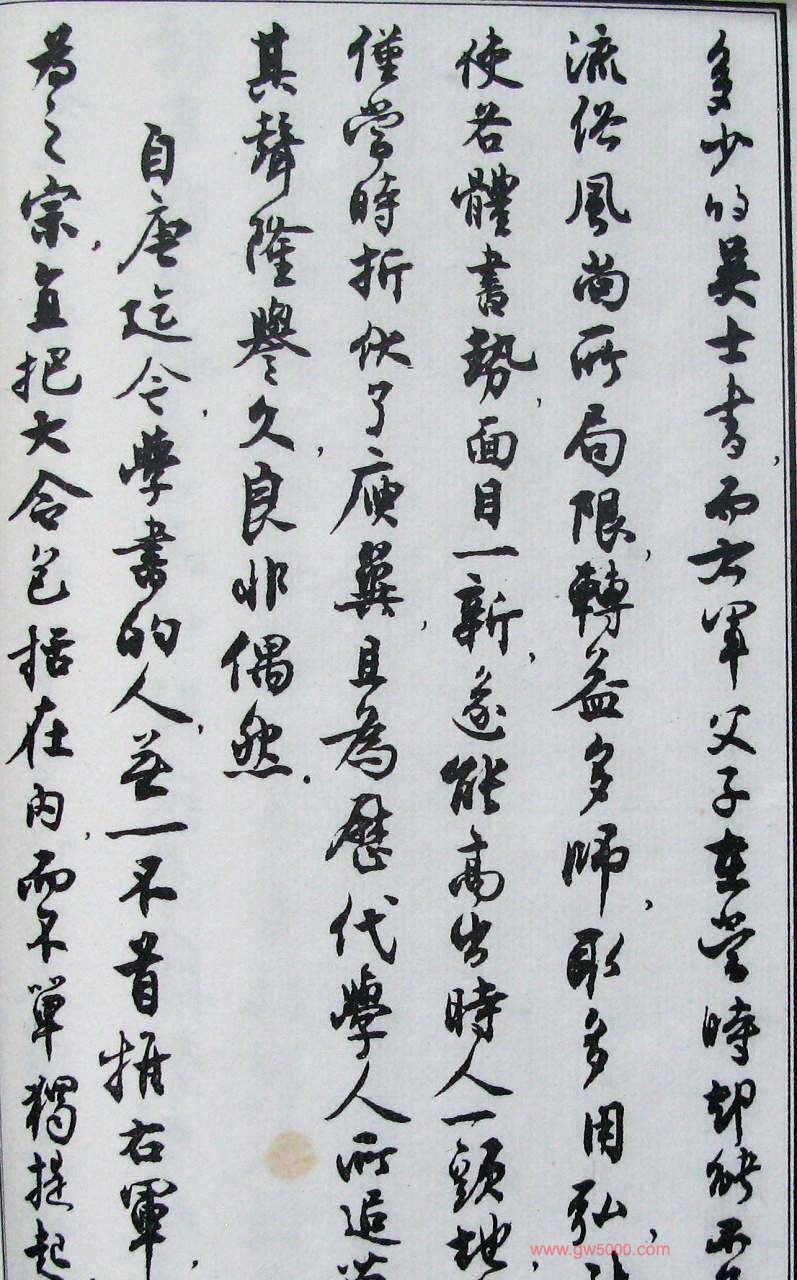 多少的吳士書，而右軍父子在當時却能不
流俗風尚所局限，轉益多師，取多用弘，
使若體書勢，面目一新，遂能高出時人一頭地，
僅當時折伏了庾翼，且為歷代學人所追
其聲隆譽久，良非偶然．
自唐迄今，學書的人，並一不首推右軍，
為之宗，直把大令包括在內，而不單獨提起
www.gw5000.com